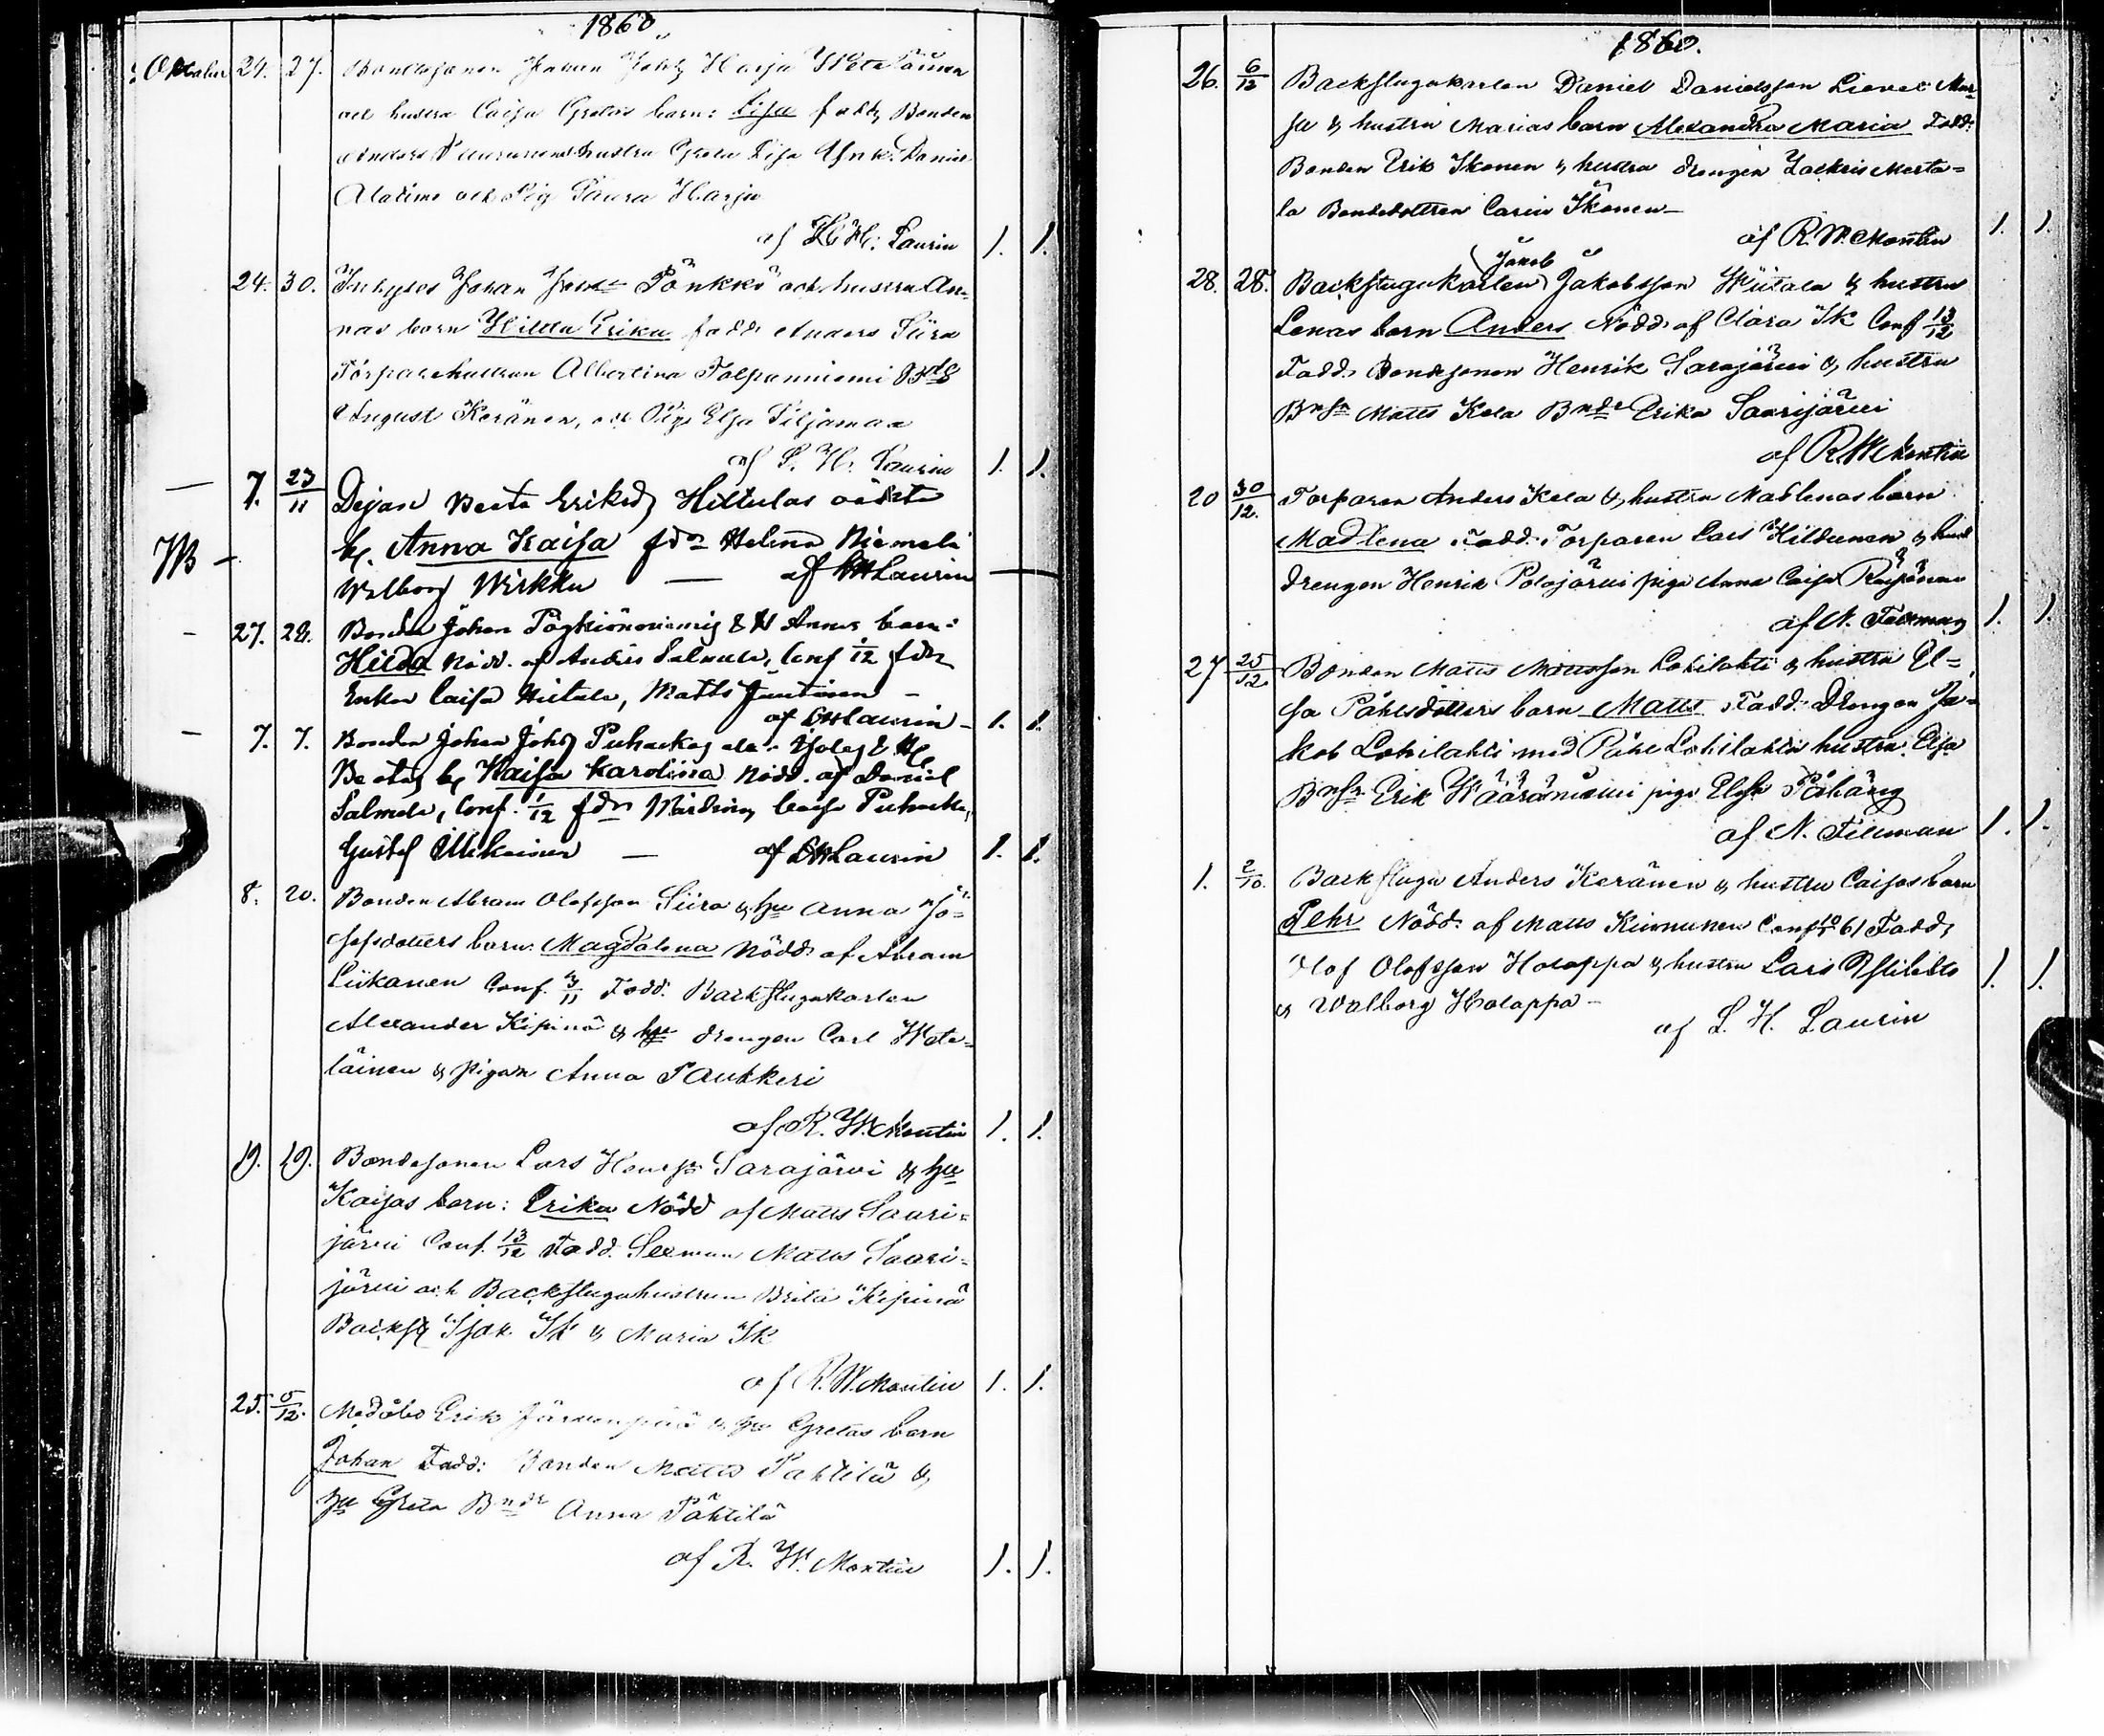 1860.
Oktober 24. 27. Bondesonen Johan Johs Harju Weteläinen
och hustru Caisa Gretas barn: Lisa fadd, Bonden
Anders hustru Greta Lisa Daniel
Alatimo och Pig Laura Harju
af L. H. Laurin 1. 1.
24. 30. Inhyses Johan Pönkkö och hustru An-
nas barn Hilda Erika fadd. Anders Siira
Torparehustrun Albertina Tolpanniemi
August Keränen, och Pig Elsa Siljamaa
af L. H. Laurin 1. 1.
— 7. 23/11 Dejan Beata Eriksd Hiltulas oäkta
b. Anna Kaisa fdr Helena Niemelä
Walborg Wirkku — af LH Laurin —
- 27. 29. Bonden Johan & H Annas barn:
Hilda Nödd. af Anders Salmela, Conf /12 fdr
Enkan Caisa Hietala, Matts Juntunen -
af LH Laurin - 1. 1.
- 7. 7. Bonden Johan Johs Puhakas & H
Beatas b. Kaisa Karolina Nödd. af Daniel
Salmela, Conf. 1/12 fdr Caisa Puhakka,
Gustaf Mikkoinen — af LH Laurin 1. 1.
8. 20. Bonden Abram Olofsson Siira & hu Anna Jo-
sefsdotters barn: Magdalena Nödd: af Abram
Liikanen Conf. 4/11 Fadd: Backstugukarlen
Alexander Kipinä & hu drengen Carl Wete-
läinen & pigan Anna Paukkeri
af R. W. Montin 1. 1.
19. 19. Bondesonen Lars Henrss Sarajärvi & hu
Kaisas barn: Erika Nödd af Matts Saari-
järvi Conf. 13/12 Fadd. Sexman Matts Saari-
järvi och Backstuguhustrun Brita Kipinä
Backst Isak Sk & Maria Sk
af R. W. Montin 1. 1.
25. 5/12. Medåbo Erik Järvenpää & hu Gretas barn
Johan Fadd: Bonden Matts Pahtila &
hu Greta Bndr Anna Pahtila
af R. W. Montin 1. 1.
1860.
26. 6/12 Backstugukarlen Daniel Danielsson
& hustru Marias barn Alexandra Maria Fadd:
Bonden Erik Ikonen & hustru drengen Zackris Merta-
la Bondedottren Carin Ikonen —
af R. W. Montin 1. 1.
Jakob
28. 28. Backstugukarlen Jakobsson Wiitala & hustru
Lenas barn Anders Nödd. af Clara Sk Conf 13/12
Fadd. Bondesonen Henrik Sarajärvi & hustru
Bnsn Matts Kela Bndr Erika Saarijärvi
af R W Montin
20 30/12. Torparen Anders Kela & hustru Madlenas barn
Madlena Fadd. Torparen Lars Hiltunen & hust
drengen Henrik Polojärvi piga Anna Caisa
af N. Fellman 1. 1.
27 25/12. Bonden Matts Mattsson Lohilahti & hustru El-
sa Påhlsdotters barn Matts Fadd. Drengen Ja-
kob Lohilahti med Påhl Lohilahtis hustru Elsa
Bnsn Erik Wääräniemi piga Elsa
af N. Fellman 1. 1.
1. 2/10. Backstugu Anders Keränen & hustru Caisas barn
Pehr Nödd. af Matts Kinnunen Conf 61 Fadd,
Olof Olofsson Holappa & hustru Lars 1. 1.
& Walborg Holappa -
af L. H. Laurin